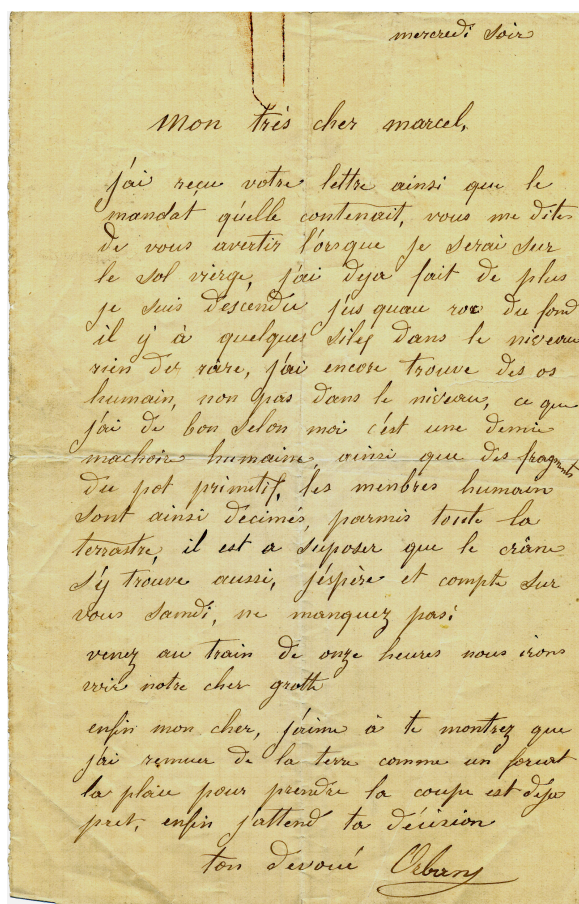 mercredi soir
Mon très cher marcel,
j'ai reçu votre lettre ainsi que le
mandat qu'elle contenait, vous me dites
de vous avertir l'orsque je serai sur
le sol vierge, j'ai deja fait de plus
je suis descendu j'us quau roc du fond
il y à quelques silex dans le niveau
rien de rare, j'ai encore trouve des os
humain, non pas dans le niveau, ce que
j'ai de bon selon moi c'est une demie
machoir humaine, ainsi que des fragments
du pot primitif, les menbres humain
sont ainsi décimés, parmis toute la
terrastre, il est a suposer que le crâne
s'éy trouve aussi, j'éspère et compte sur
vous samdi, ne manquez pas!
venez au train de onze heures nous irons
voir notre cher grotte
enfin mon cher, j'aime à te montrez que
j'ai remuer de la terre comme un forcat
la place pour prendre la coupe est deja
pret, enfin j'attend ta décision
ton devoué